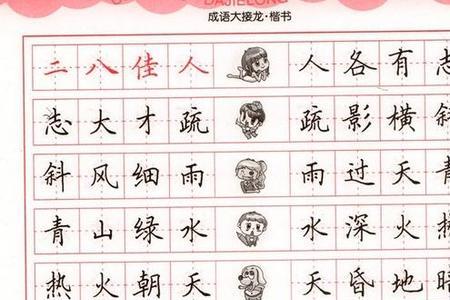 DAJIELONG
成语大接龙·楷书
二八佳人 人各有志
志大才疏 疏影横斜
斜风细雨 雨过天青
青山绿水 水深火热
热火朝天 天昏地暗